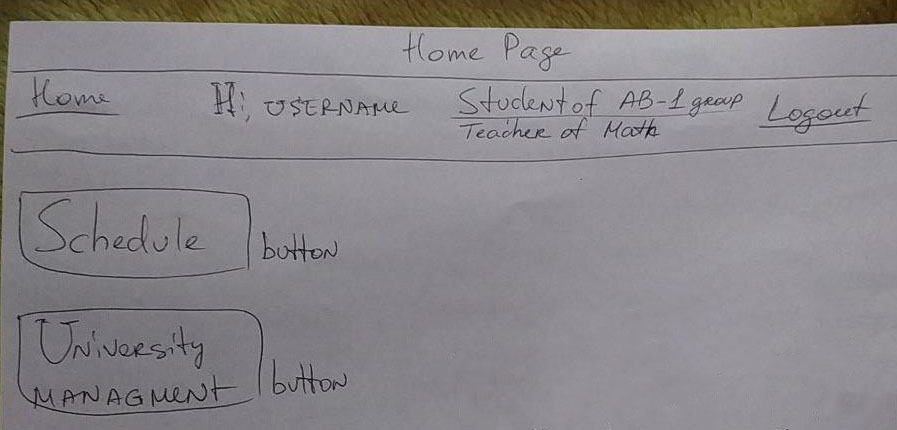 Home Page
Home Hi, USERNAME Student of AB-1 group Logout
Teacher of Math
Schedule button
University
MANAGMENT button